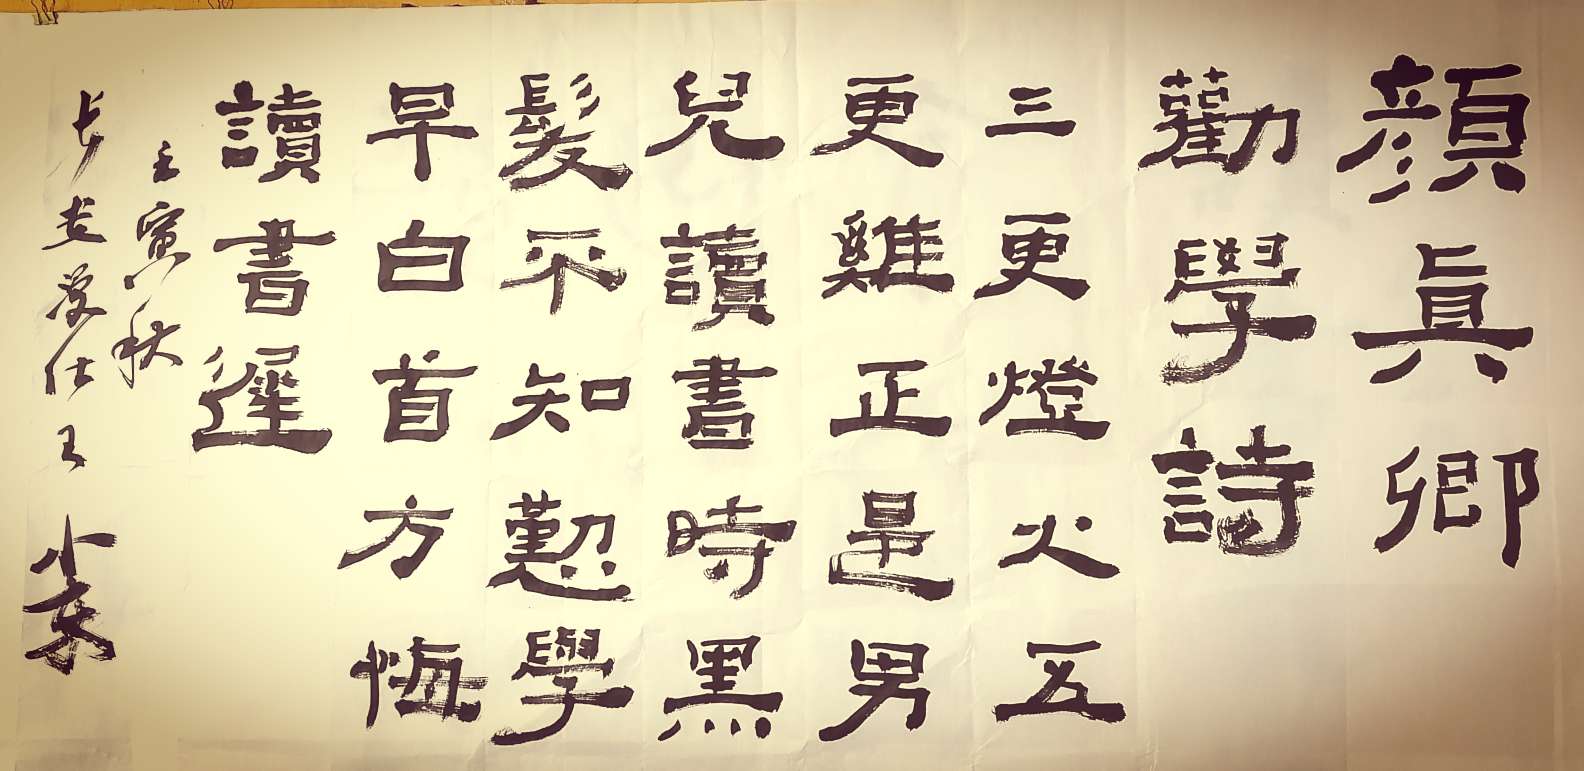 顔眞卿
勸學詩
三更燈火五
更雞正是男
兒讀書時黑
髮不知懃學
早白首方悔
讀書遲
壬寅秋